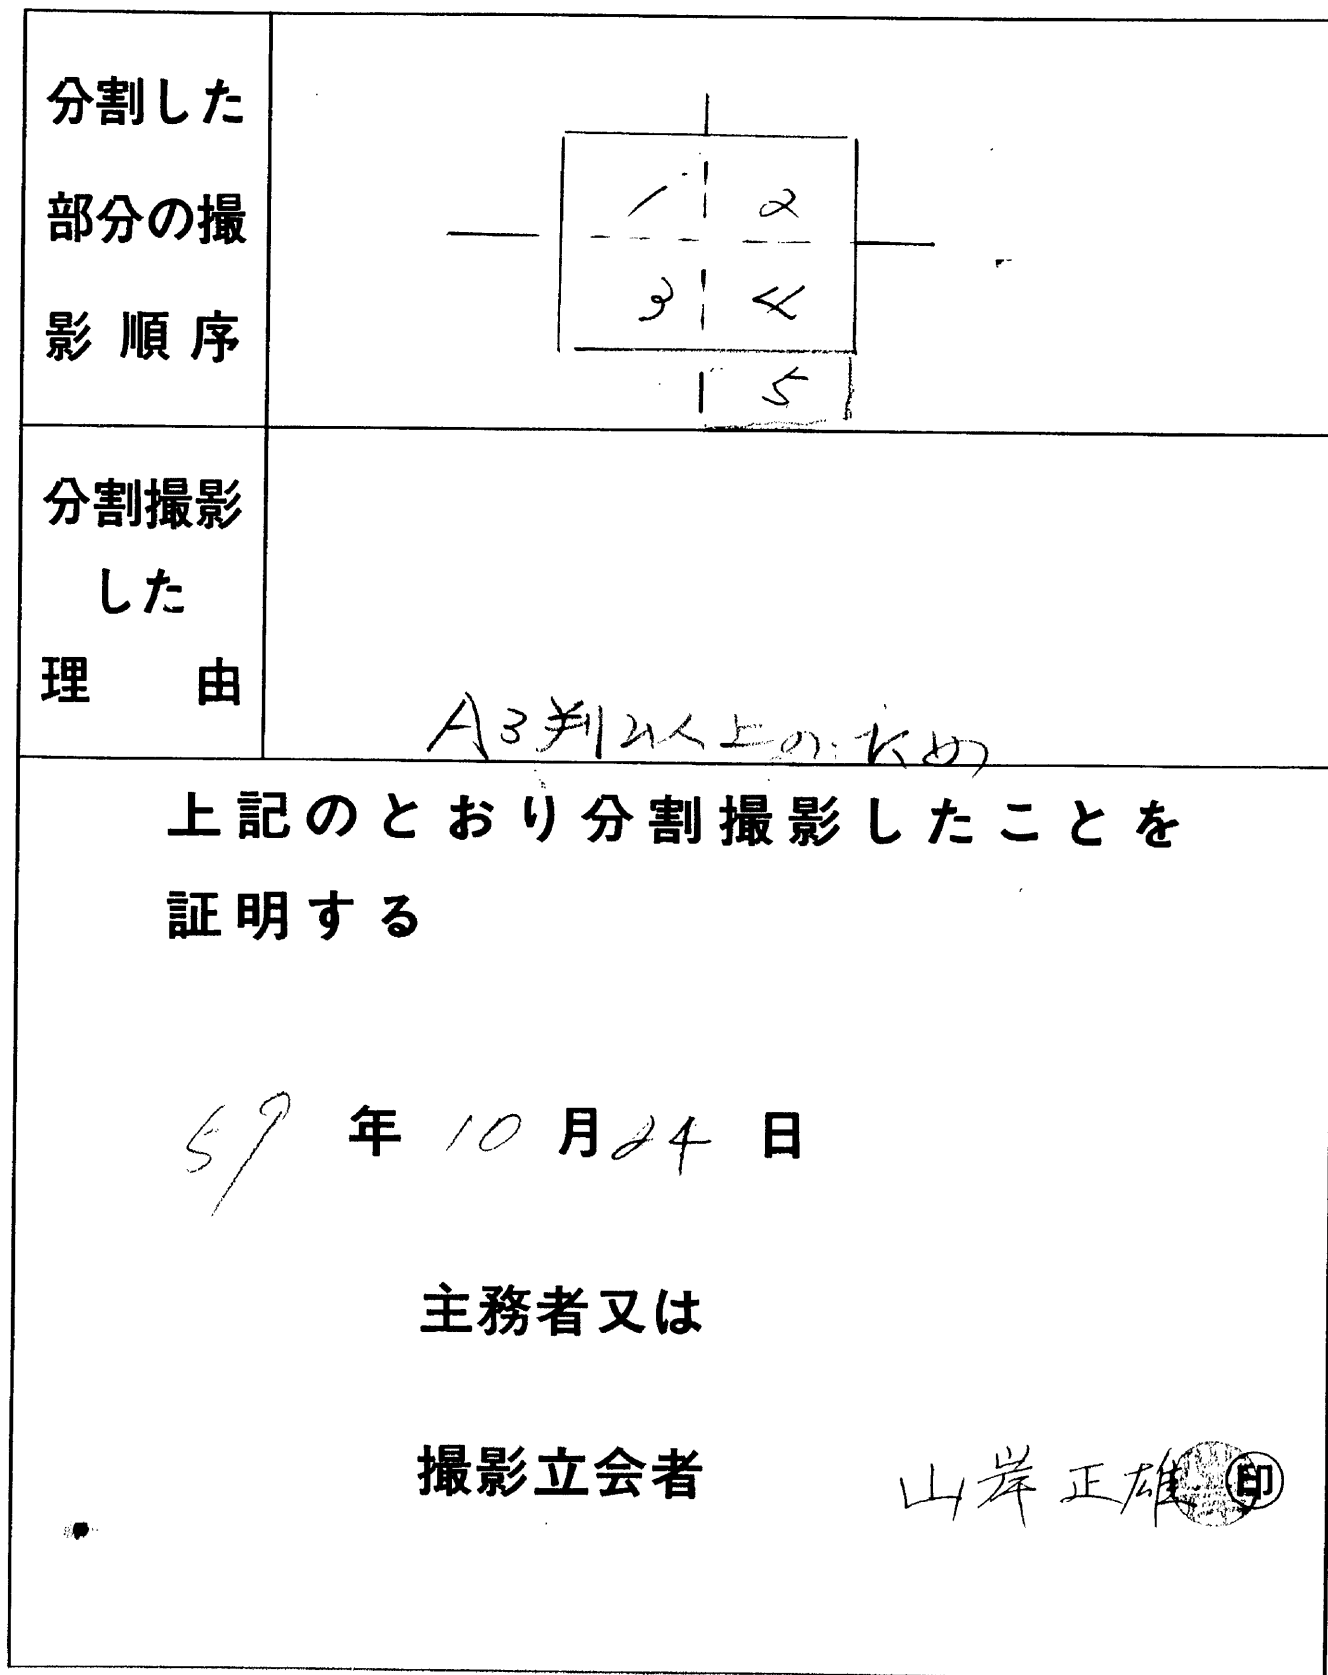 分割した
部分の撮
影順序
1 2
3 4
5
分割撮影
した
理由
A3判以上のため
上記のとおり分割撮影したことを
証明する
59年10月24日
主務者又は
撮影立会者 山岸正雄 印